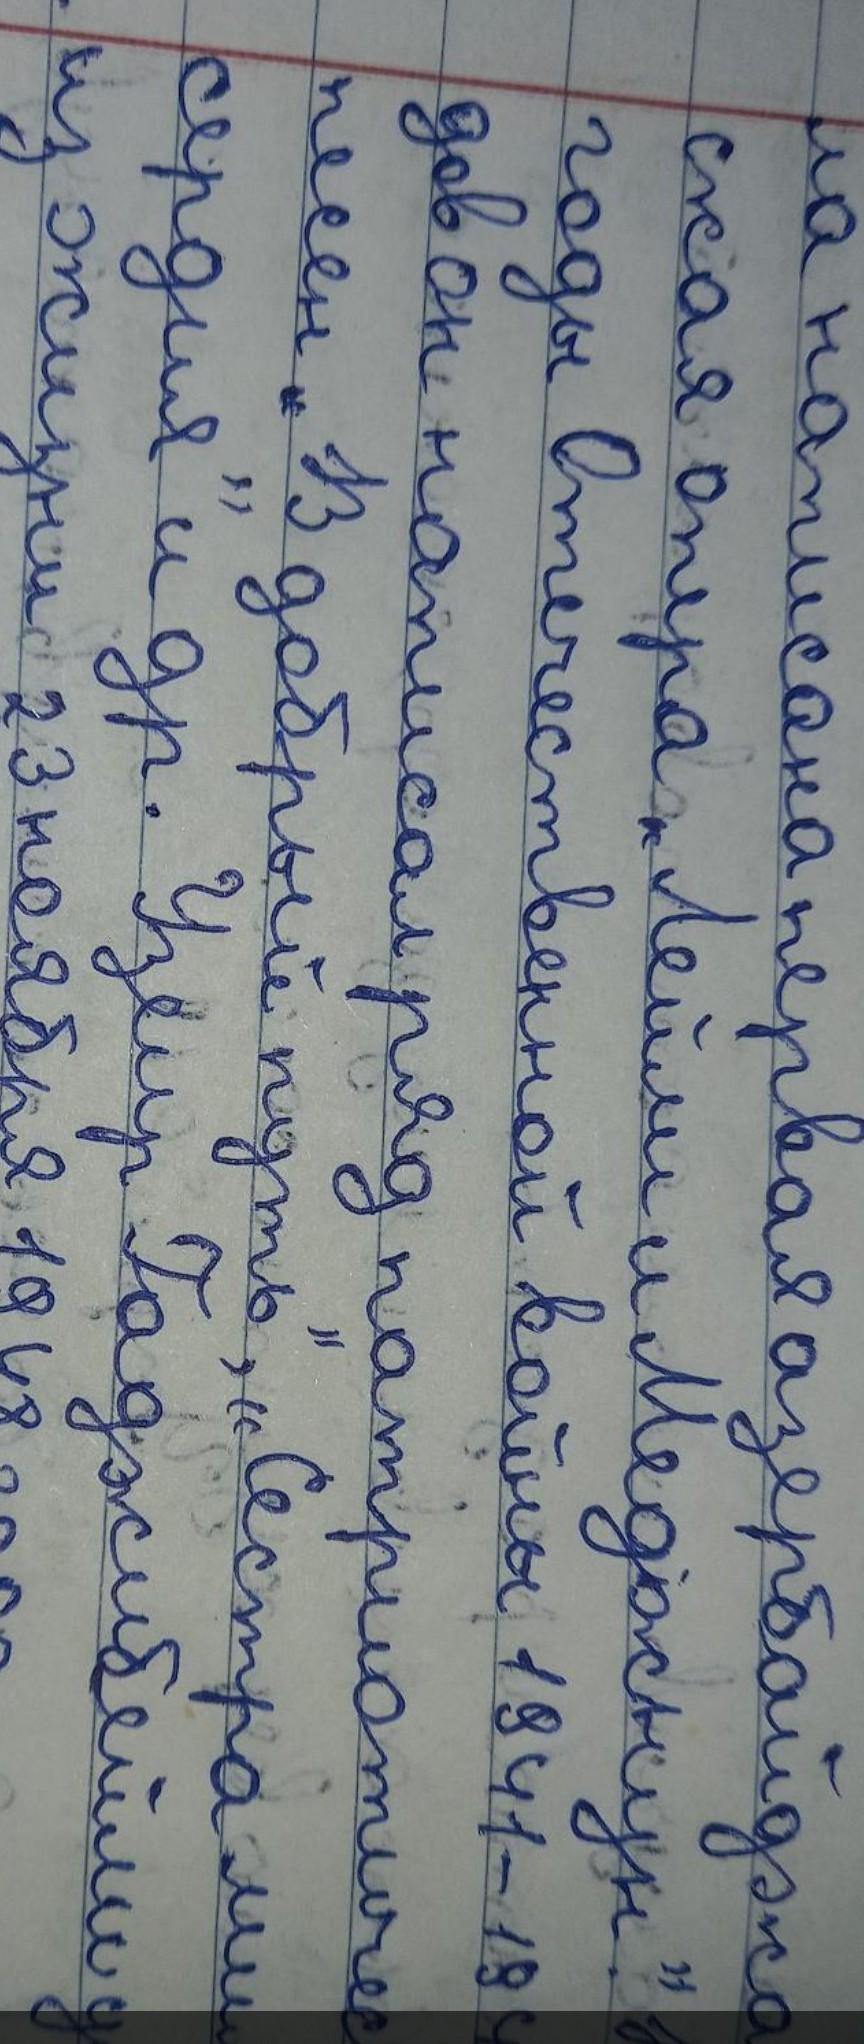 ла написана первая азербайджа
ская опера „Лейли и Меджнун".
годы Отечественной войны 1941-19
дов он написал ряд патриотичес
песен „В добрый путь", „Сестра ми
сердия" и др. Узеир Гаджибейли у
из жизни 23 ноября 1948